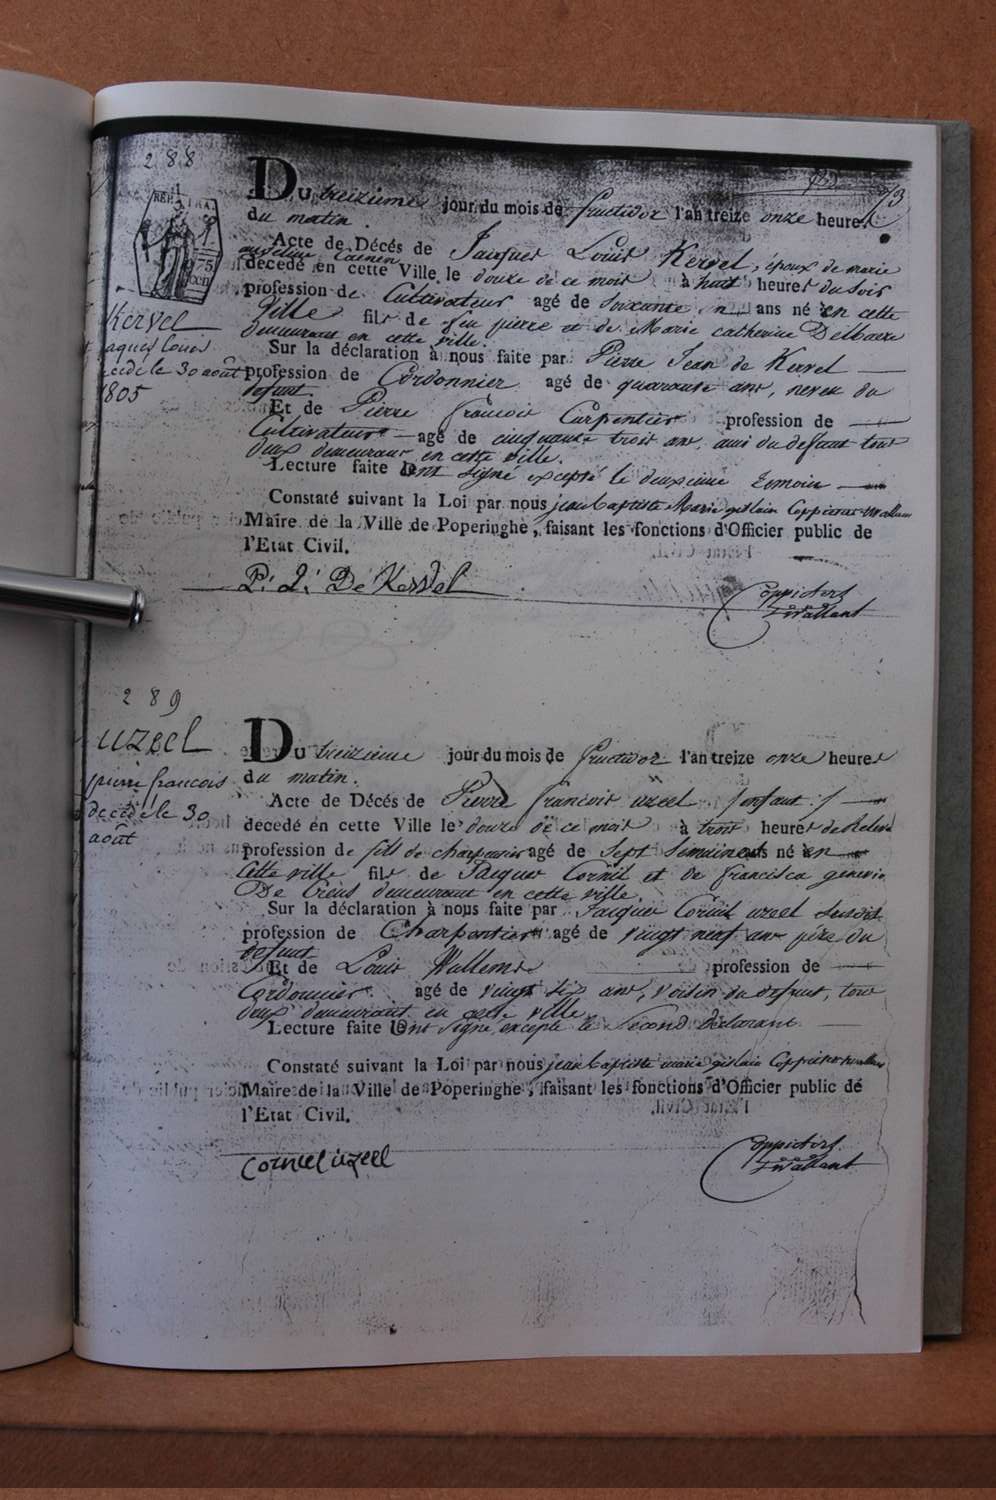 288
73
REP. FRA.
75
CEN
Du treizieme jour du mois de fructidor l'an treize onze heures
du matin.
Acte de Décés de Jacques Louis Kervel, époux de marie
decedé en cette Ville le douze de ce mois à huit heures du soir
profession de Cultivateur agé de soixante ans né en cette
Ville fils de feu pierre et de Marie catherine Delbaere
demeurant en cette ville.
Sur la déclaration à nous faite par Pierre Jean de Kervel
profession de Cordonnier agé de quarante ans, neveu du
defunt.
Et de Pierre françois Carpentier profession de
Cultivateur agé de cinquante trois ans, ami du defunt tous
deux demeurant en cette ville.
Lecture faite ont signé excepté le deuxieme temoin
Constaté suivant la Loi par nous jean baptiste Marie gislain Coppieters-wallant
Maire de la Ville de Poperinghe, faisant les fonctions d'Officier public de
l'Etat Civil.
Kervel
Jaques Louis
decedé le 30 août
1805
P: J: De Kervel
Coppieters
wallant
289
uzeel
pierre francois
decedé le 30
août
Du treizieme jour du mois de fructidor l'an treize onze heures
du matin.
Acte de Décés de Pierre françois uzeel /enfant:/
decedé en cette Ville le douze de ce mois à trois heures de Releve
profession de fils de charpentier agé de Sept Semaines né en
Cette ville fils de Jacques Corneil et de francisca genevie
De Creus demeurant en cette ville.
Sur la déclaration à nous faite par Jacques Corneil uzeel susdit
profession de Charpentier agé de vingt neuf ans père du
defunt
Et de Louis Wallems profession de
Cordonnier agé de vingt six ans, voisin du defunt, tous
deux demeurant en cette ville
Lecture faite Ont Signé excepté le Second Déclarant
Constaté suivant la Loi par nous jean baptiste marie gislain Coppieters-wallant
Maire de la Ville de Poperinghe, faisant les fonctions d'Officier public de
l'Etat Civil.
Corneel uzeel
Coppieters
wallant